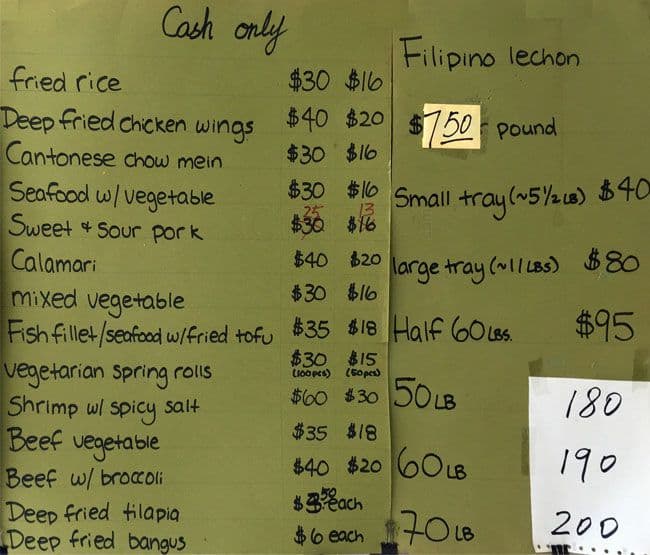 Cash only
fried rice $30 $16
Deep fried chicken wings $40 $20
Cantonese chow mein $30 $16
Seafood w/ vegetable $30 $16
25 13
Sweet + sour pork $30 $16
Calamari $40 $20
mixed vegetable $30 $16
Fish fillet/seafood w/fried tofu $35 $18
vegetarian spring rolls $30 $15
(100pcs) (50pcs)
Shrimp w/ spicy salt $60 $30
Beef vegetable $35 $18
Beef w/ broccoli $40 $20
Deep fried tilapia $ 50 each
Deep fried bangus $6 each
Filipino lechon
$7 50 - pound
Small tray (~5 1/2 LB) $40
large tray (~11 LBS) $80
Half 60 LBS. $95
50 LB 180
60 LB 190
70 LB 200